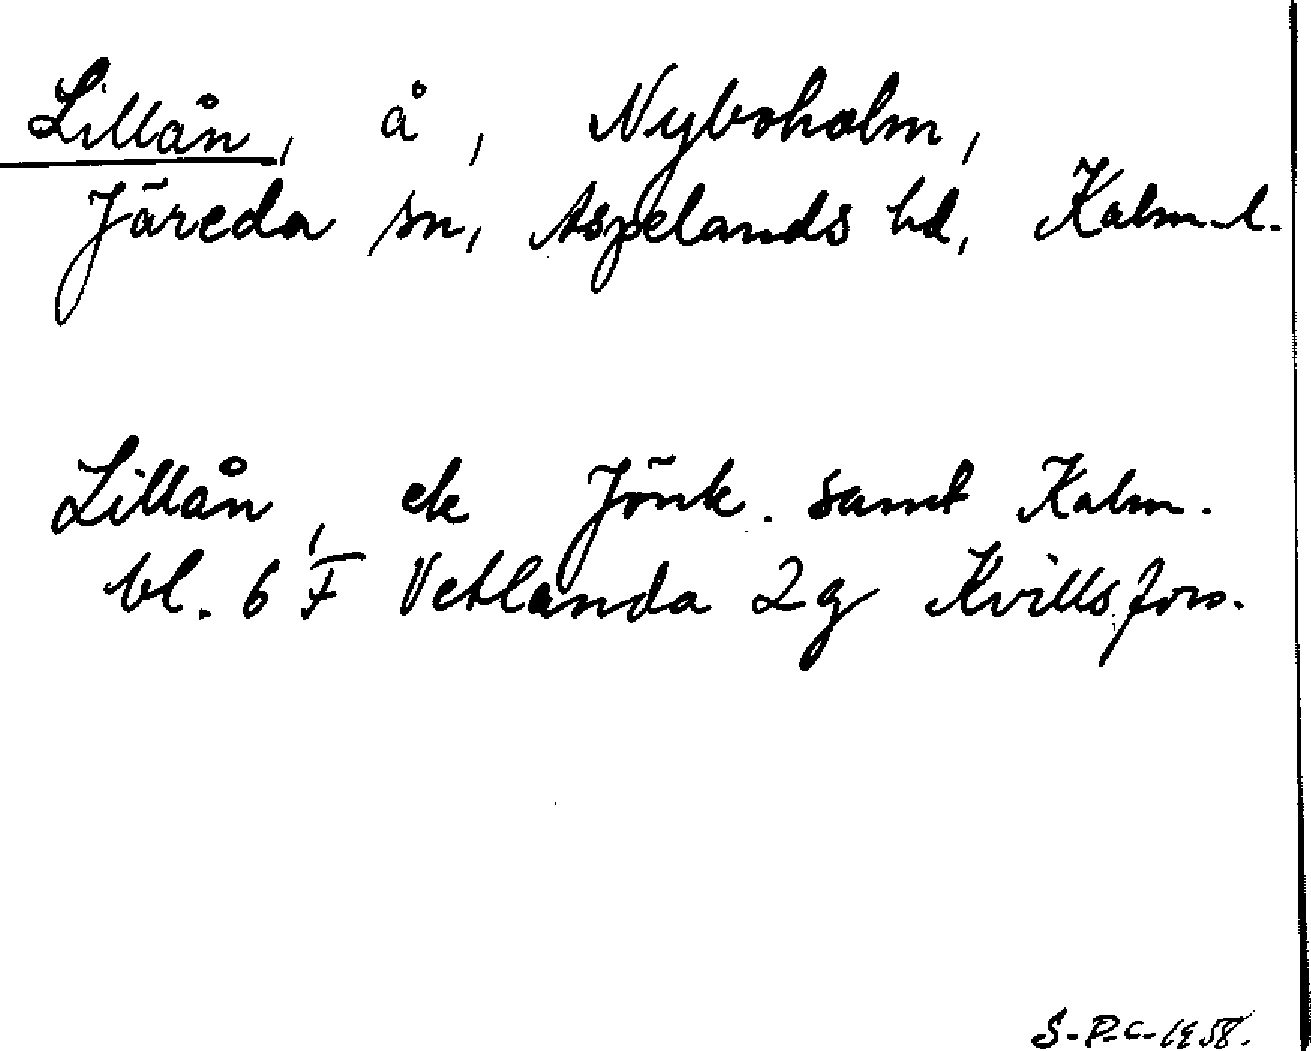 Lillån, å, Nyboholm,
Järeda sn, Aspelands hd, Kalm. l.
Lillån, ek Jönk. samt Kalm.
bl. 6 F Vetlanda 2g Kvillsfors.
S-P.C-1958.